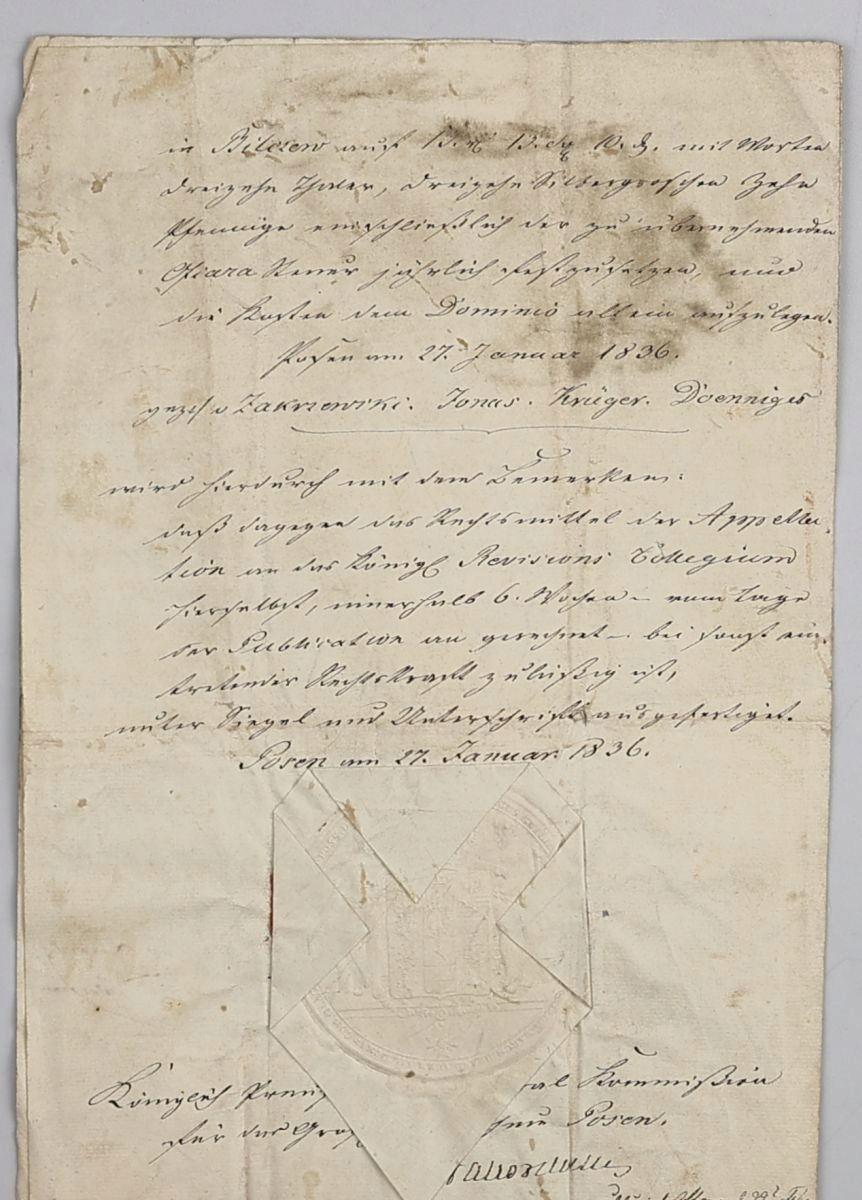 in Bilczew auf 13. rℓ 13. sg 10. d. mit Worten
dreizehn Thaler, dreizehn Silbergroschen zehn
Pfennige einschließlich der zu übernehmenden
Ofiara Steuer jährlich festzusetzen, und
die Kosten dem Dominio allein aufzulegen.
Posen am 27. Januar 1836.
gez. v Zakrzewski. Jonas. Krüger. Doenniges
wird hierdurch mit dem Bemerken:
daß dagegen das Rechtsmittel der Appella-
tion an das Königl Revisions Collegium
hierselbst, innerhalb 6. Wochen – vom Tage
der Publication an gerechnet – bei sonst ein-
tretender Rechtskraft zuläßig ist,
unter Siegel und Unterschrift ausgefertiget.
Posen am 27. Januar 1836.
Königlich Preuß al Kommißion
für das Groß Posen.